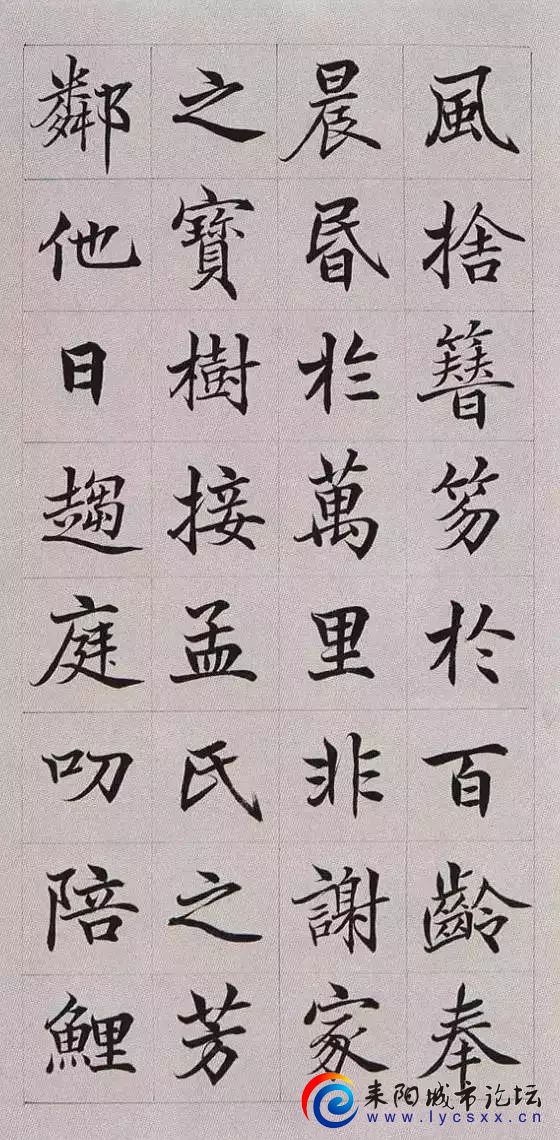 風捨簪笏於百齡奉
晨昏於萬里非謝家
之寶樹接孟氏之芳
鄰他日趨庭叨陪鯉
耒阳城市论坛
www.lycsxx.cn